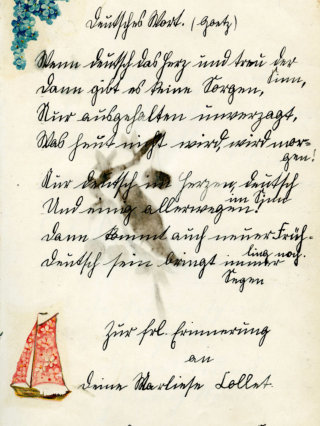 Deutsches Wort. (Goetz)
Wenn deutsch das Herz und treu der Sinn,
Dann gibt es keine Sorgen,
Nur ausgehalten unverzagt,
Was heut nicht wird, wird morgen!
Nur deutsch im Herzen, deutsch im Sinn
Und einig allerwegen!
Dann kommt auch neuer Frühling noch.
Deutsch sein bringt immer Segen
Zur frl. Erinnerung
an
Deine Marliese Collet